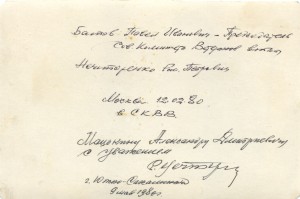 Батов Павел Иванович - Председатель
Сов. Комитета Ветеранов войны
Нечипоренко Вл. Петрович
Москва 12.02.80
в СКВВ
Мацокину Александру Дмитриевичу
с уважением
г. Южно-Сахалинск
9 мая 1980 г.